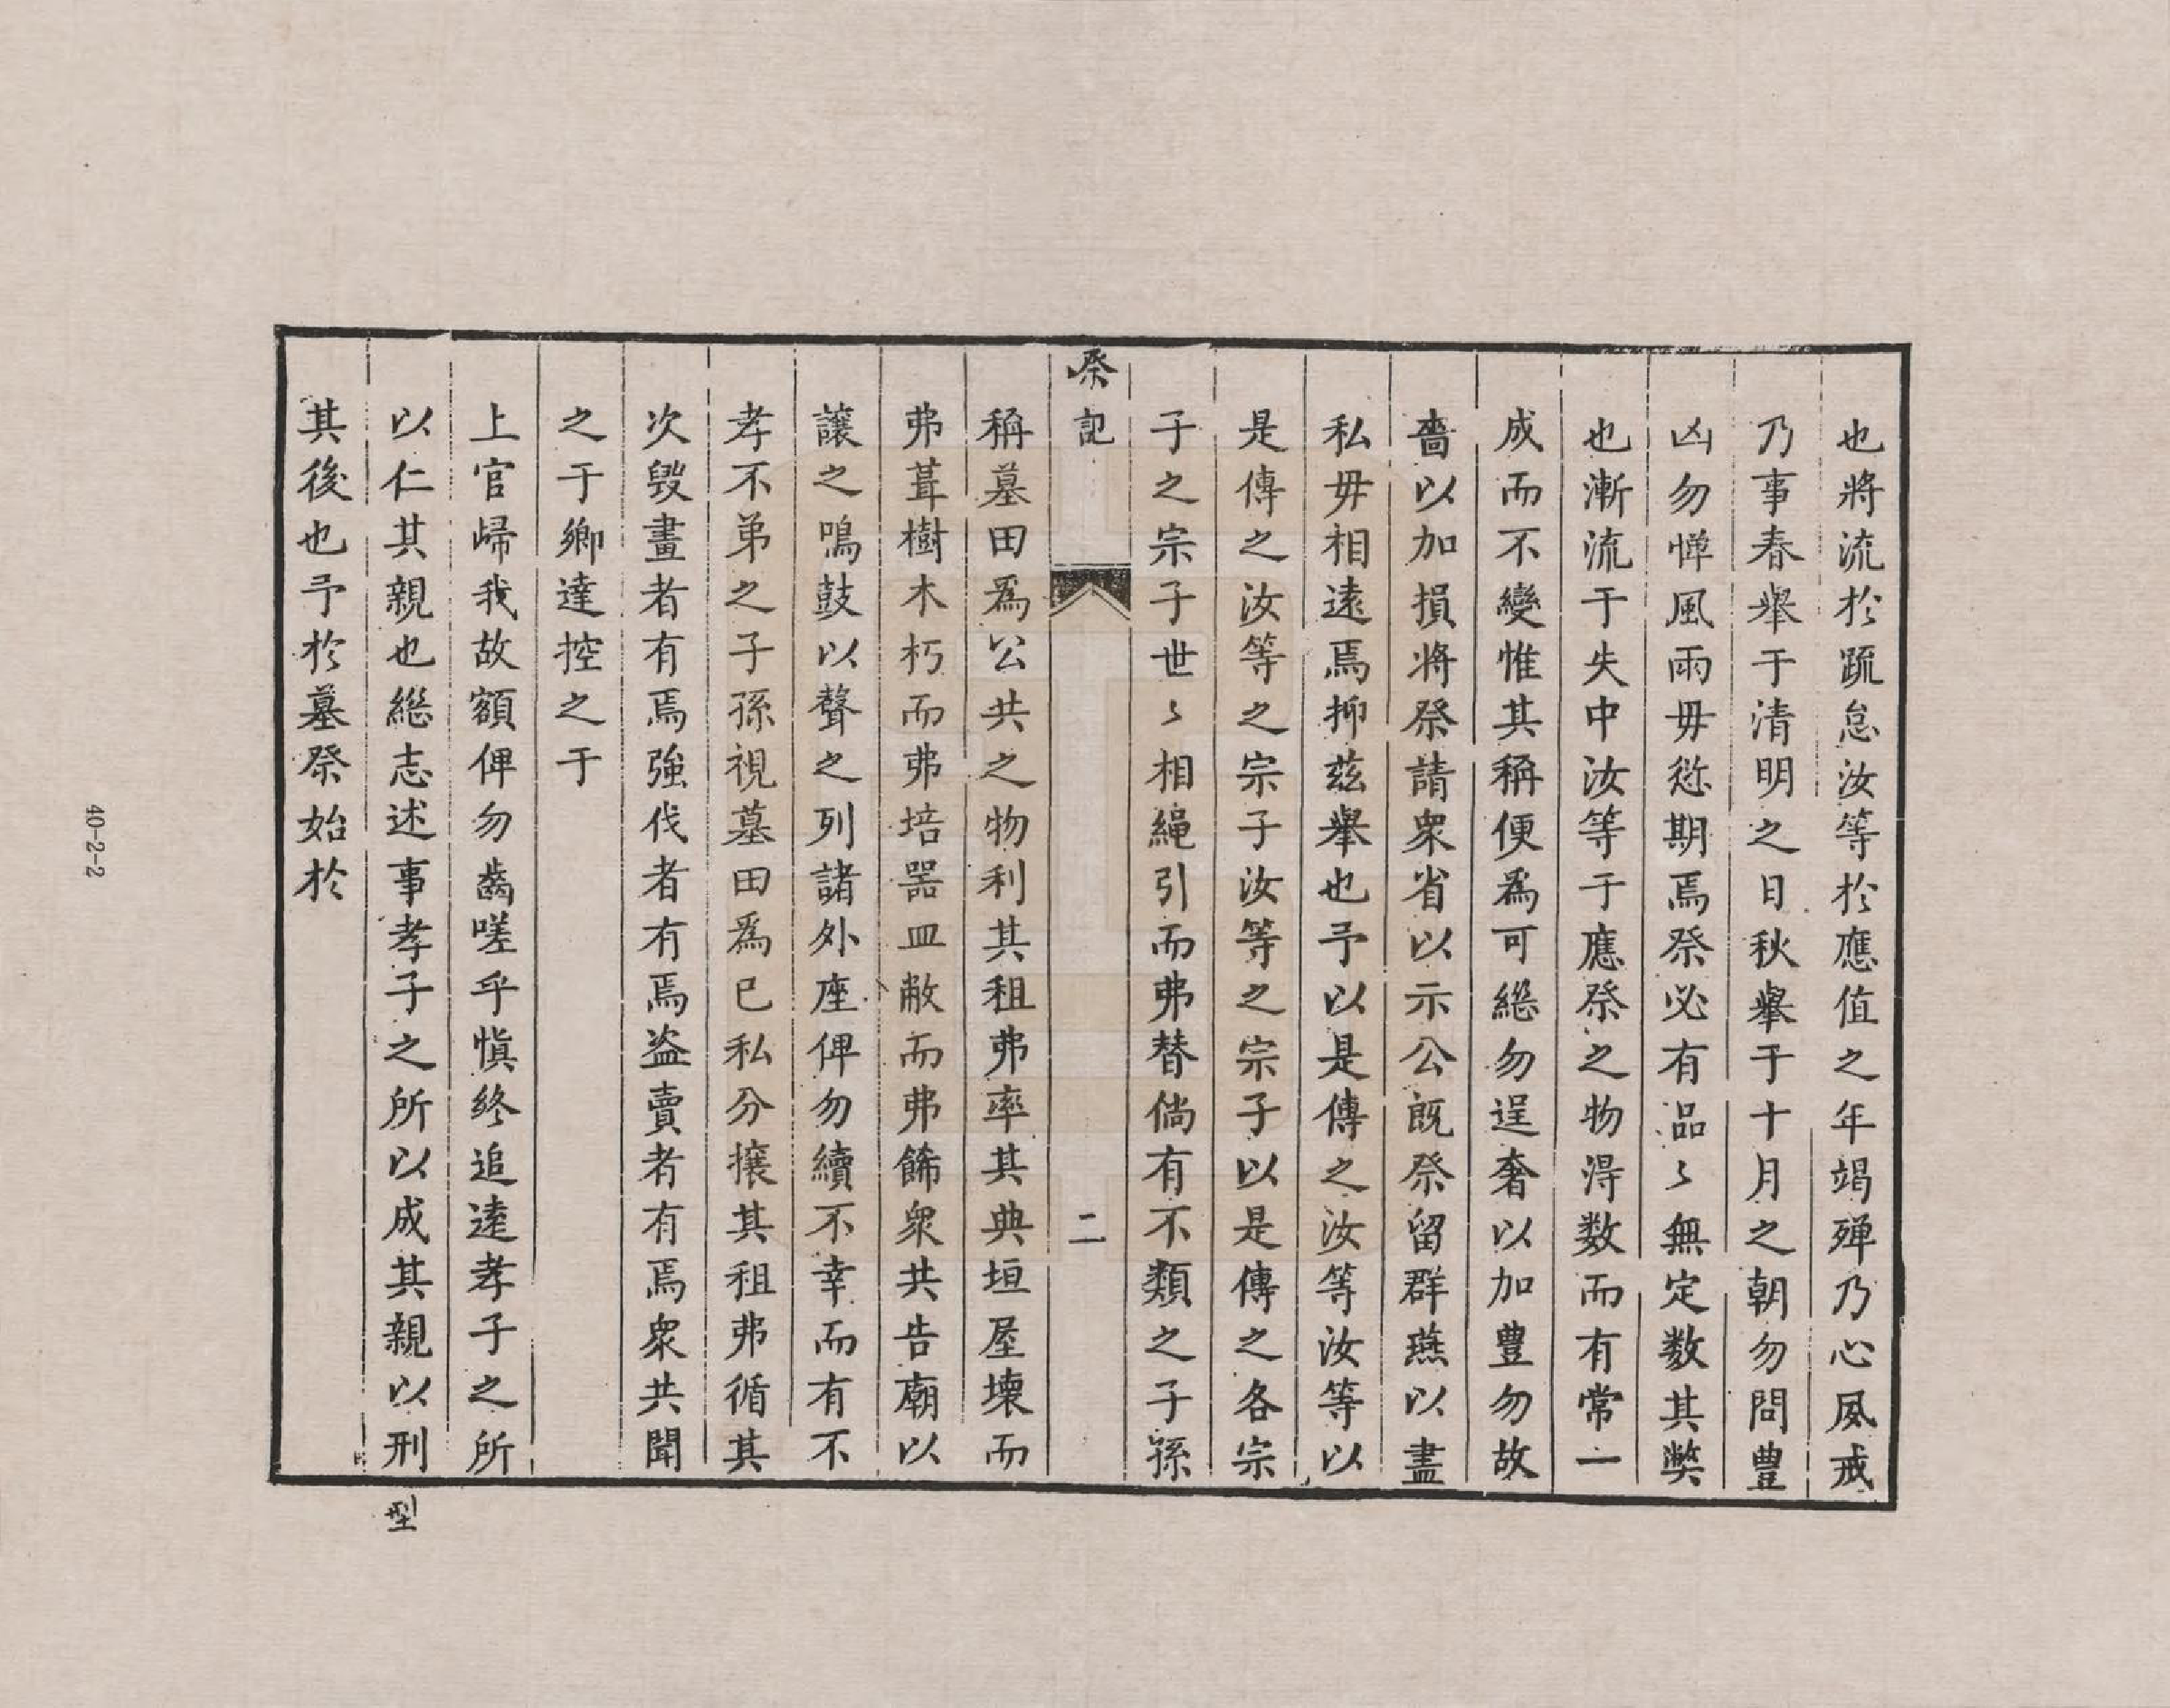 也將流於疏怠汝等於應值之年竭殫乃心夙戒
乃事春舉于清明之日秋舉于十月之朝勿問豐
凶勿憚風雨毋愆期焉祭必有品〻無定数其弊
也漸流于失中汝等于應祭之物淂数而有常一
成而不變惟其稱便爲可継勿逞奢以加豊勿故
嗇以加損將祭請衆省以示公既祭留群燕以盡
私毋相遠焉抑茲舉也予以是傳之汝等汝等以
是傳之汝等之宗子汝等之宗子以是傳之各宗
子之宗子世〻相繩引而弗替倘有不類之子孫
祭記
二
稱墓田爲公共之物利其租弗率其典垣屋壞而
弗葺樹木朽而弗培噐皿敝而弗餙衆共告廟以
讓之鳴鼓以聲之列諸外座俾勿續不幸而有不
孝不弟之子孫視墓田爲已私分攘其租弗循其
次毁畫者有焉強伐者有焉盗賣者有焉衆共聞
之于鄉達控之于
上官歸我故額俾勿齒嗟乎慎終追逺孝子之所
以仁其親也継志述事孝子之所以成其親以刑
型
其後也予於墓祭始於
40-2-2